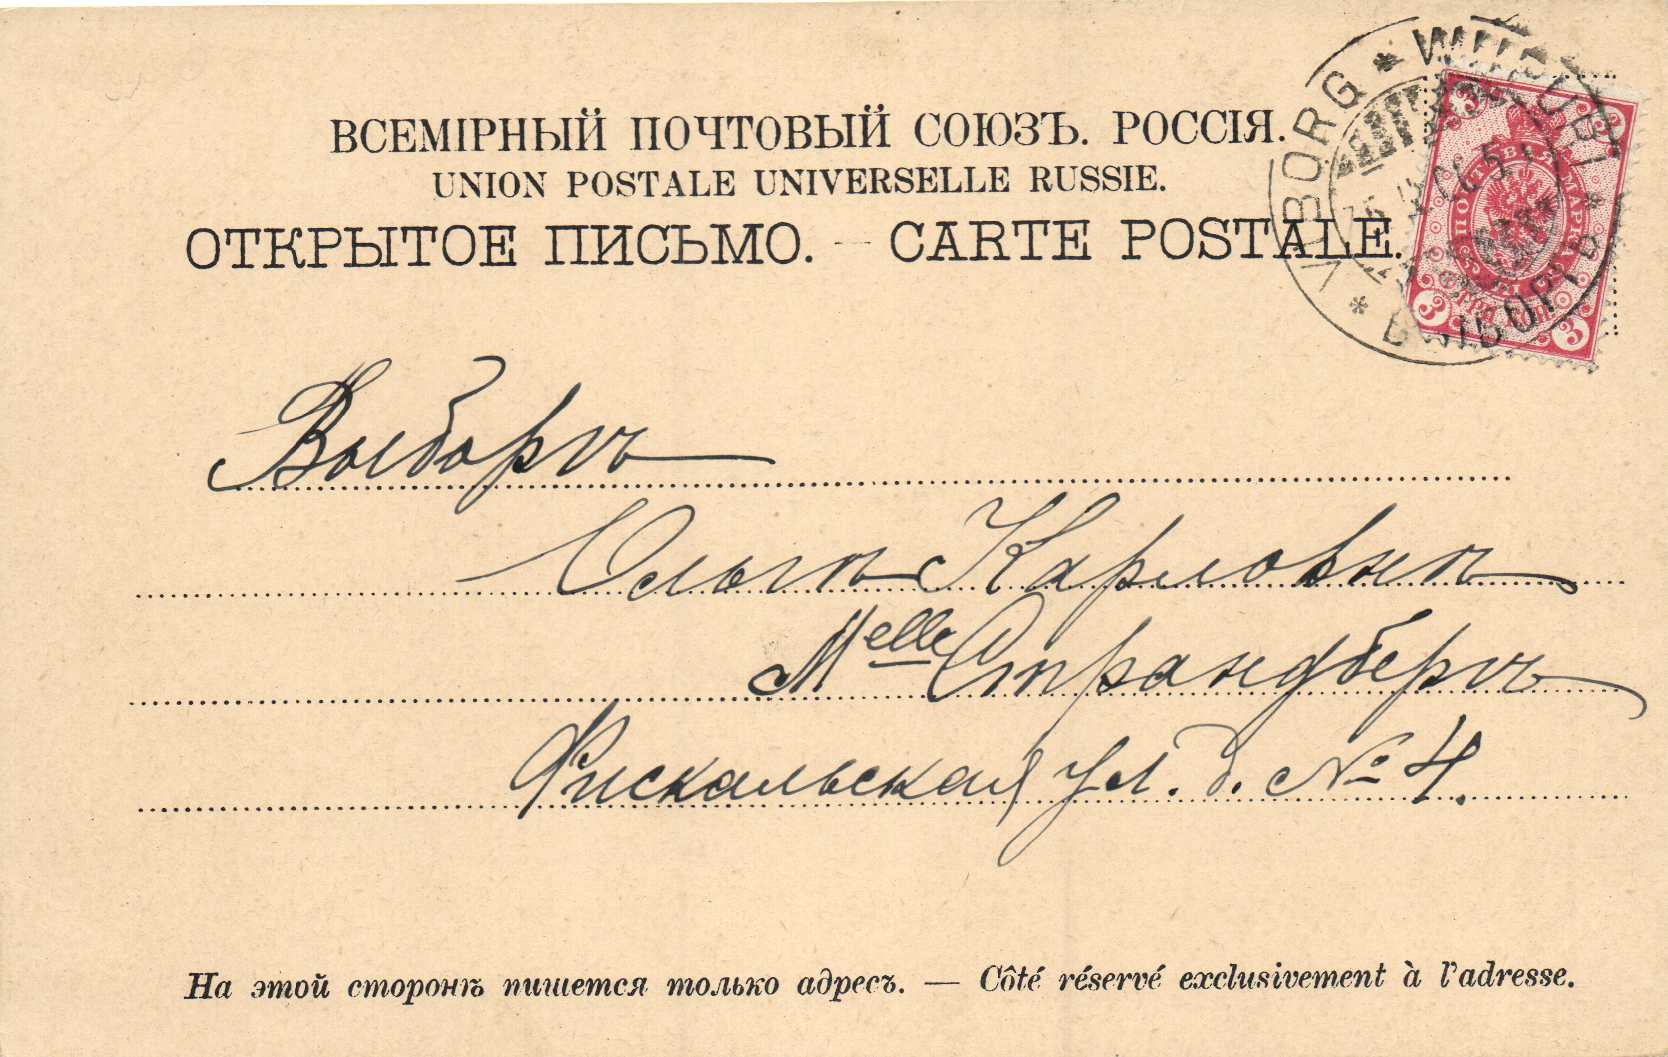 ВСЕМІРНЫЙ ПОЧТОВЫЙ СОЮЗЪ. РОССІЯ.
UNION POSTALE UNIVERSELLE RUSSIE.
ОТКРЫТОЕ ПИСЬМО. — CARTE POSTALE.
VIBORG * WIIPURI * ВЫБОРГЪ *
ПОЧТОВАЯ МАРКА
ТРИ КОП.
3 3 3 3
Выборгъ
Ольгѣ Карловнѣ
Melle Страндбергъ
Фискальская ул. д. № 4.
На этой сторонѣ пишется только адресъ. — Côté réservé exclusivement à l'adresse.